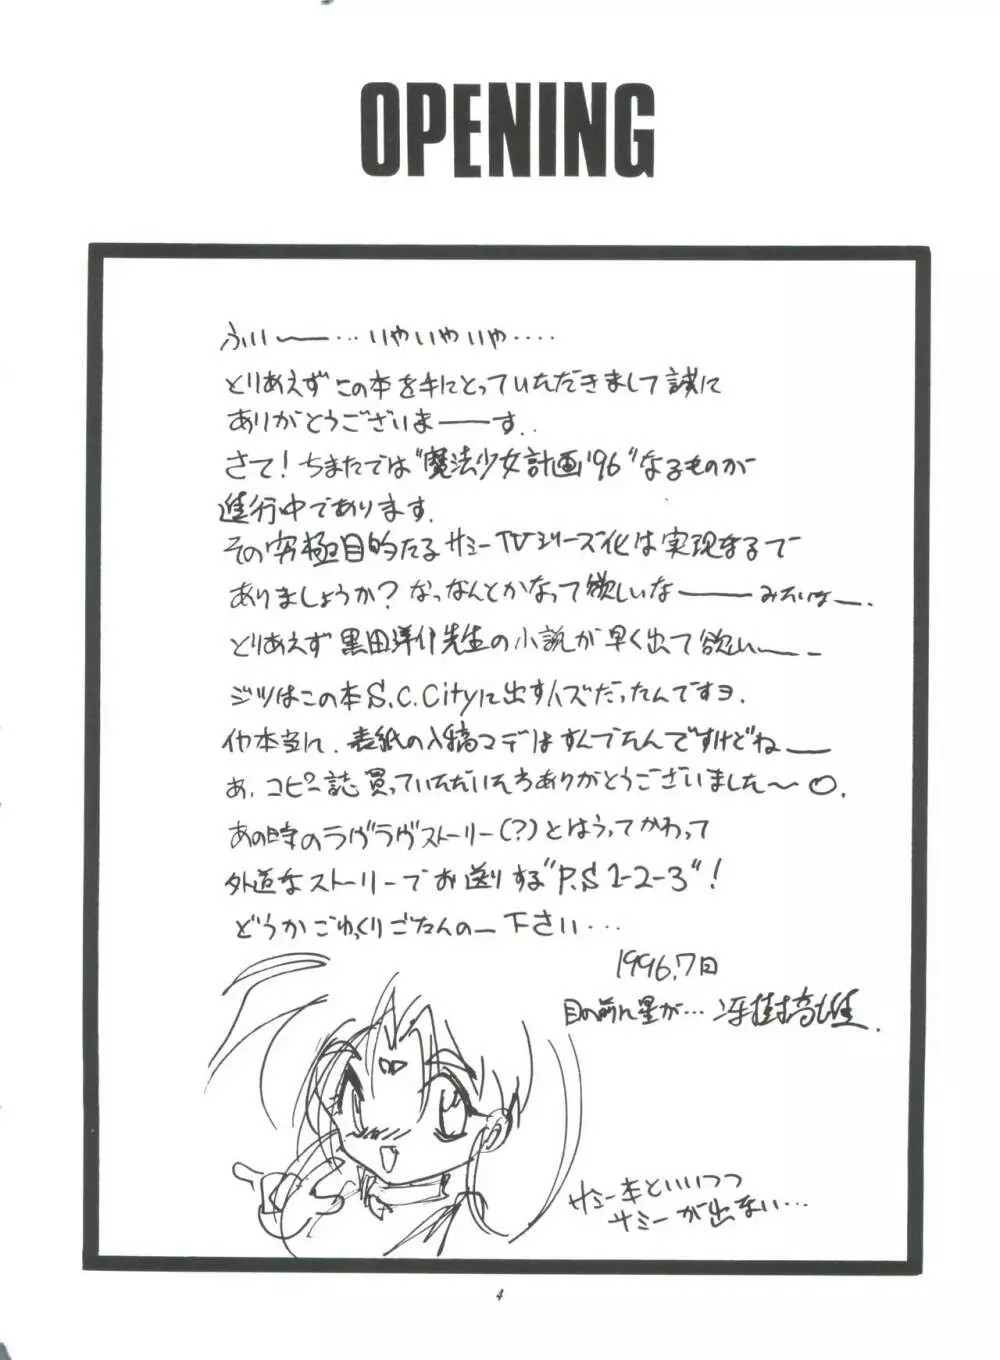 OPENING
ふい〜…いやいやいや‥‥
とりあえずこの本を手にとっていただきまして誠に
ありがとうございまーーす．．
さて！ちまたでは“魔法少女計画'96”なるものが
進行中であります．
その究極目的たるサミーTVシリーズ化は実現するで
ありましょうか？なっなんとかなって欲しいなーーーみたいなー．
とりあえず黒田洋介先生の小説が早く出て欲しいーー
ジツはこの本S.C.Cityに出すハズだったんですヨ．
イヤ本当に．表紙の入稿マデはすんでたんですけどねー
あ．コピー誌買っていただいた方ありがとうございました〜○．
あの時のラヴラヴストーリー(？)とはうってかわって
外道なストーリーでお送りする“P.S 1-2-3”！
どうかごゆっくりごたんのー下さい…
1996.7月
目の前に星が…冴樹高雄．
サミー本といいつつ
サミーが出ない…
4